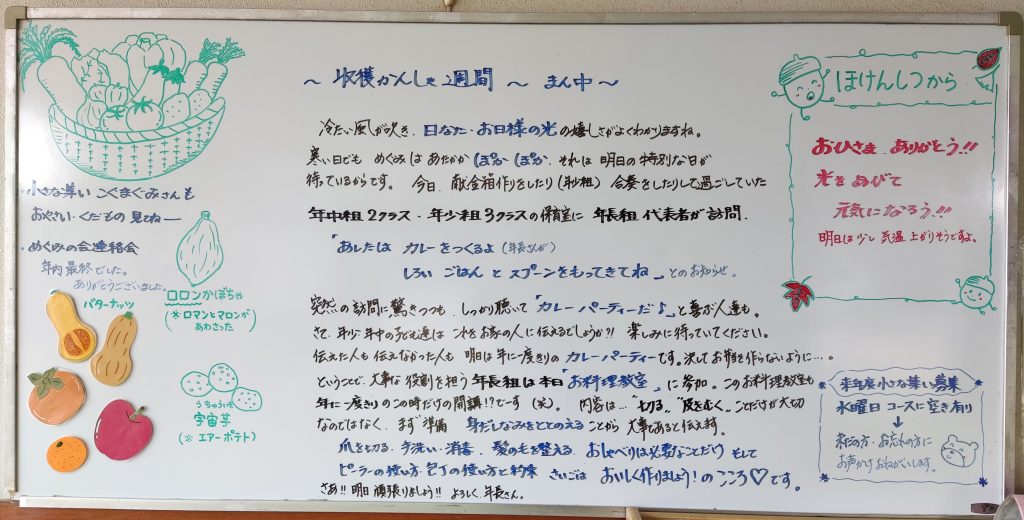 ・小さな集い こぐまぐみさんも
おやさい・くだもの 見てねー
・めぐみの会連絡会
年内最終でした。
ありがとうございました。
バターナッツ
ロロンかぼちゃ
(※ロマンとマロンが
あわさった)
うちゅういも
宇宙芋
(※ エアーポテト)
～ 収穫かんしゃ週間 ～ まん中～
冷たい風が吹き、日なた・お日様の光の嬉しさがよくわかりますね。
寒い日でも めぐみは あたたか ぽか ぽか、それは 明日の特別な日が
待っているからです。今日、献金箱作りをしたり(年少組) 合奏をしたりして過ごしていた
年中組2クラス・年少組3クラスの保育室に 年長組 代表者が訪問.
「あしたは カレーをつくるよ (年長さんが)
しろい ごはん と スプーンをもってきてね」とのお知らせ。
突然の訪問に驚きつつも、しっかり聴いて「カレーパーティーだ♪」と喜ぶ人達も。
さて、年少・年中の子ども達は これをお家の人に伝えるでしょうか!! 楽しみに待っていてください。
伝えた人も 伝えなかった人も 明日は年に一度きりの カレーパーティーです。決してお弁当を作らないように…。
ということで、大事な 役割を担う 年長組は 本日「お料理教室」に参加。このお料理教室も
年に一度きりの この時だけの開講!?でーす (笑)。 内容は…"切る" "皮をむく" ことだけが大切
なのではなく、まず 準備 身だしなみをととのえる ことから 大事であると伝えます.
爪を切る、手洗い・消毒、髪の毛を整える、おしゃべりは必要なことだけ そして
ピーラーの使い方・包丁の使い方と約束 さいごは おいしく作りましょう!の こころ♡です。
さあ!! 明日 頑張りましょう!! よろしく、年長さん。
ほけんしつから
おひさま ありがとう!!
光をあびて
元気になろう!!
明日は少し 気温 上がりそうですよ。
来年度小さな集い募集
水曜日 コースに空き有り
↓
未だの方・お忘れの方に
お声かけ おねがいします。